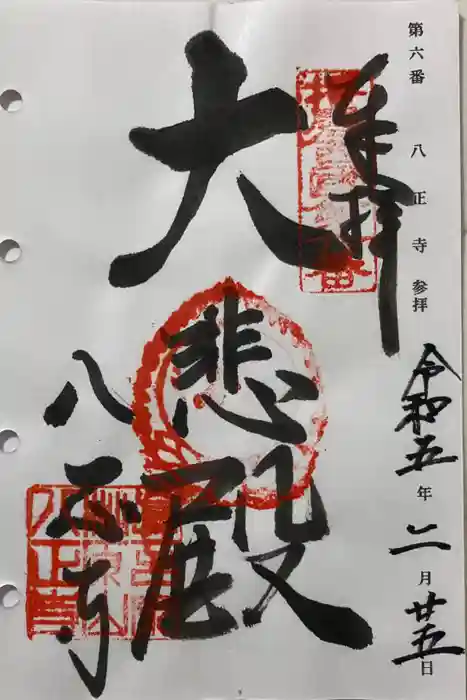 第六番 八正寺 参拝
令和五年二月廿五日
奉拝
大悲殿
八正寺